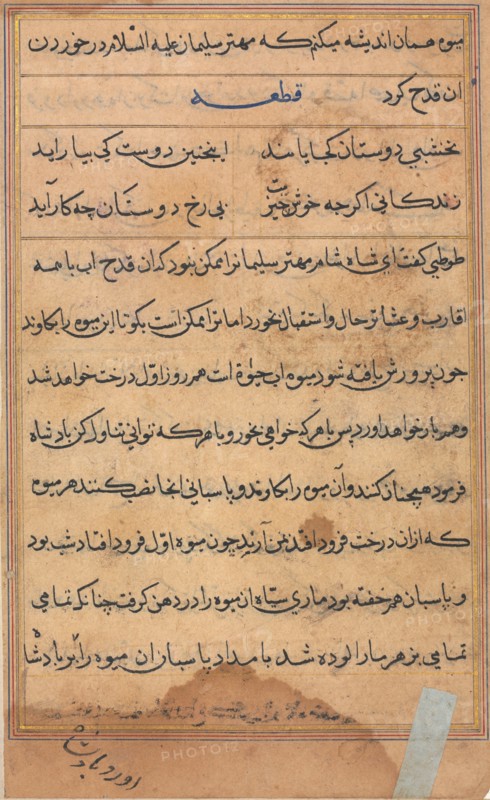 میوه همان اندیشه میکنم که مهتر سلیمان علیه السلام در خوردن
ان قدح کرد قطعه
نخشبی دوستان کجا یابند اینچنین دوست کی بیا راید
زندکانی اکرچه خوش چیزیست بی رخ دوستان چه کار آید
طوطی کفت ای شاه شاهر مهتر سلیمانرا ممکن نبود کدان قدح اب با همه
اقارب و عشایر حال و استقبال بخورد اما ترا ممکن است بکو تا این میوه را بکاوند
چون پرورش یافته شود میوه اب حیوة است هم روز اول درخت خواهد شد
و هم بار خواهد اورد پس با هرکه خواهی بخور و با هر که توانی تناول کن بادشاه
فرمود همچنان کنند وآن میوه را بکاوند و پاسبانی انجا نصب کنند هر میوه
که ازان درخت فرود افتد بمن آرند چون میوه اول فرود افتاد شب بود
و پاسبان هم خفته بود ماری سیاه ان میوه را در دهن کرفت چنانکه تمامی
تمامی بزهر مار الوده شد بامداد پاسبان ان میوه را بر بادشا
اورد بادشاه
PHOTO12